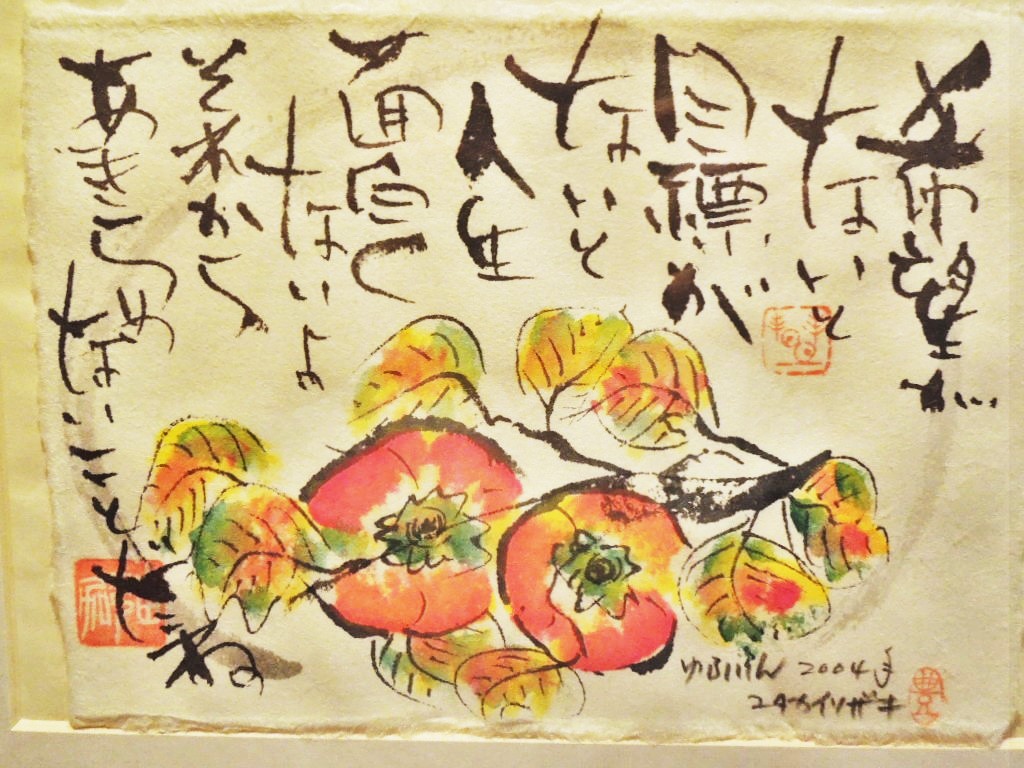 希望が
ないと
目標が
ないと
人生
面白く
ないよ
それから
あきらめ
ないことだね
ゆふいん 2004年
ユタカイソザキ